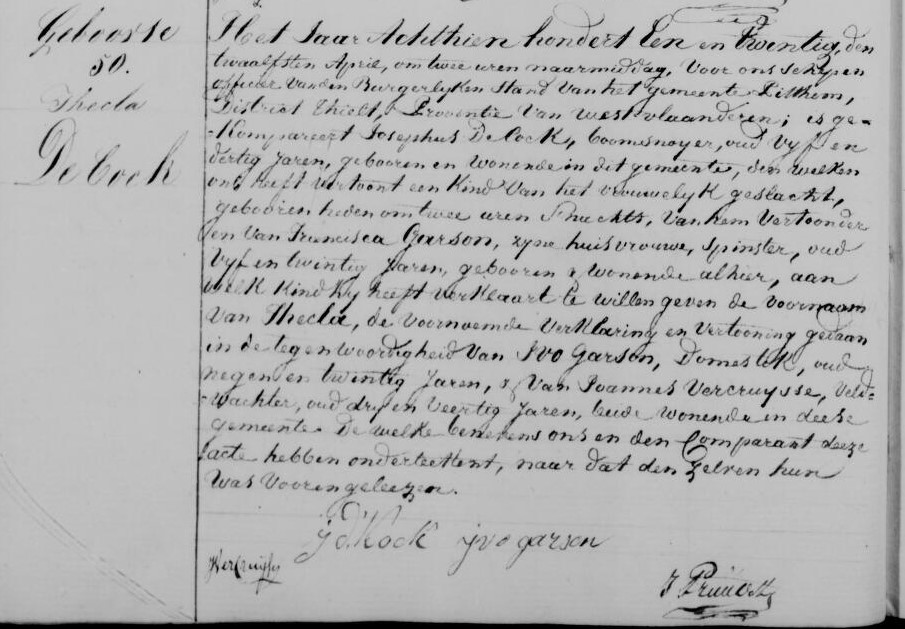 Geboorte
50.
Thecla
De Cock
Het Jaar Achthien hondert Een en twintig, den
twaalfsten April, om twee uren naarmiddag, voor ons schepen
officier van den Burgerlyken Stand van het gemeente Pitthem,
District Thielt, Provintie van westvlaanderen; is ge=
=kompareert Josephus De Cock, boomsnoyer, oud vyf en
dertig Jaren, gebooren en wonende in dit gemeente, den welken
ons heeft vertoont een kind van het vrouwelyk geslacht,
gebooren heden om twee uren S'nachts, van hem vertoonder
en van Francisca Garson, zyne huisvrouwe, spinster, oud
vyf en twintig Jaren, gebooren & wonende alhier, aan
welk kind hy heeft verklaart te willen geven de voornaam
van Thecla, de voornoemde verklaring en vertooning gedaan
in de tegenwoordigheid van Ivo Garson, Domestik, oud
negen en twintig Jaren, & van Joannes Vercruysse, veld=
=wachter, oud dry en veertig Jaren, beide wonende in deese
gemeente. De welke benevens ons en den Comparant deeze
acte hebben onderteekent, naar dat den zelven hun
was voorengeleezen.
j d Kock ivo garson
Vercruysse